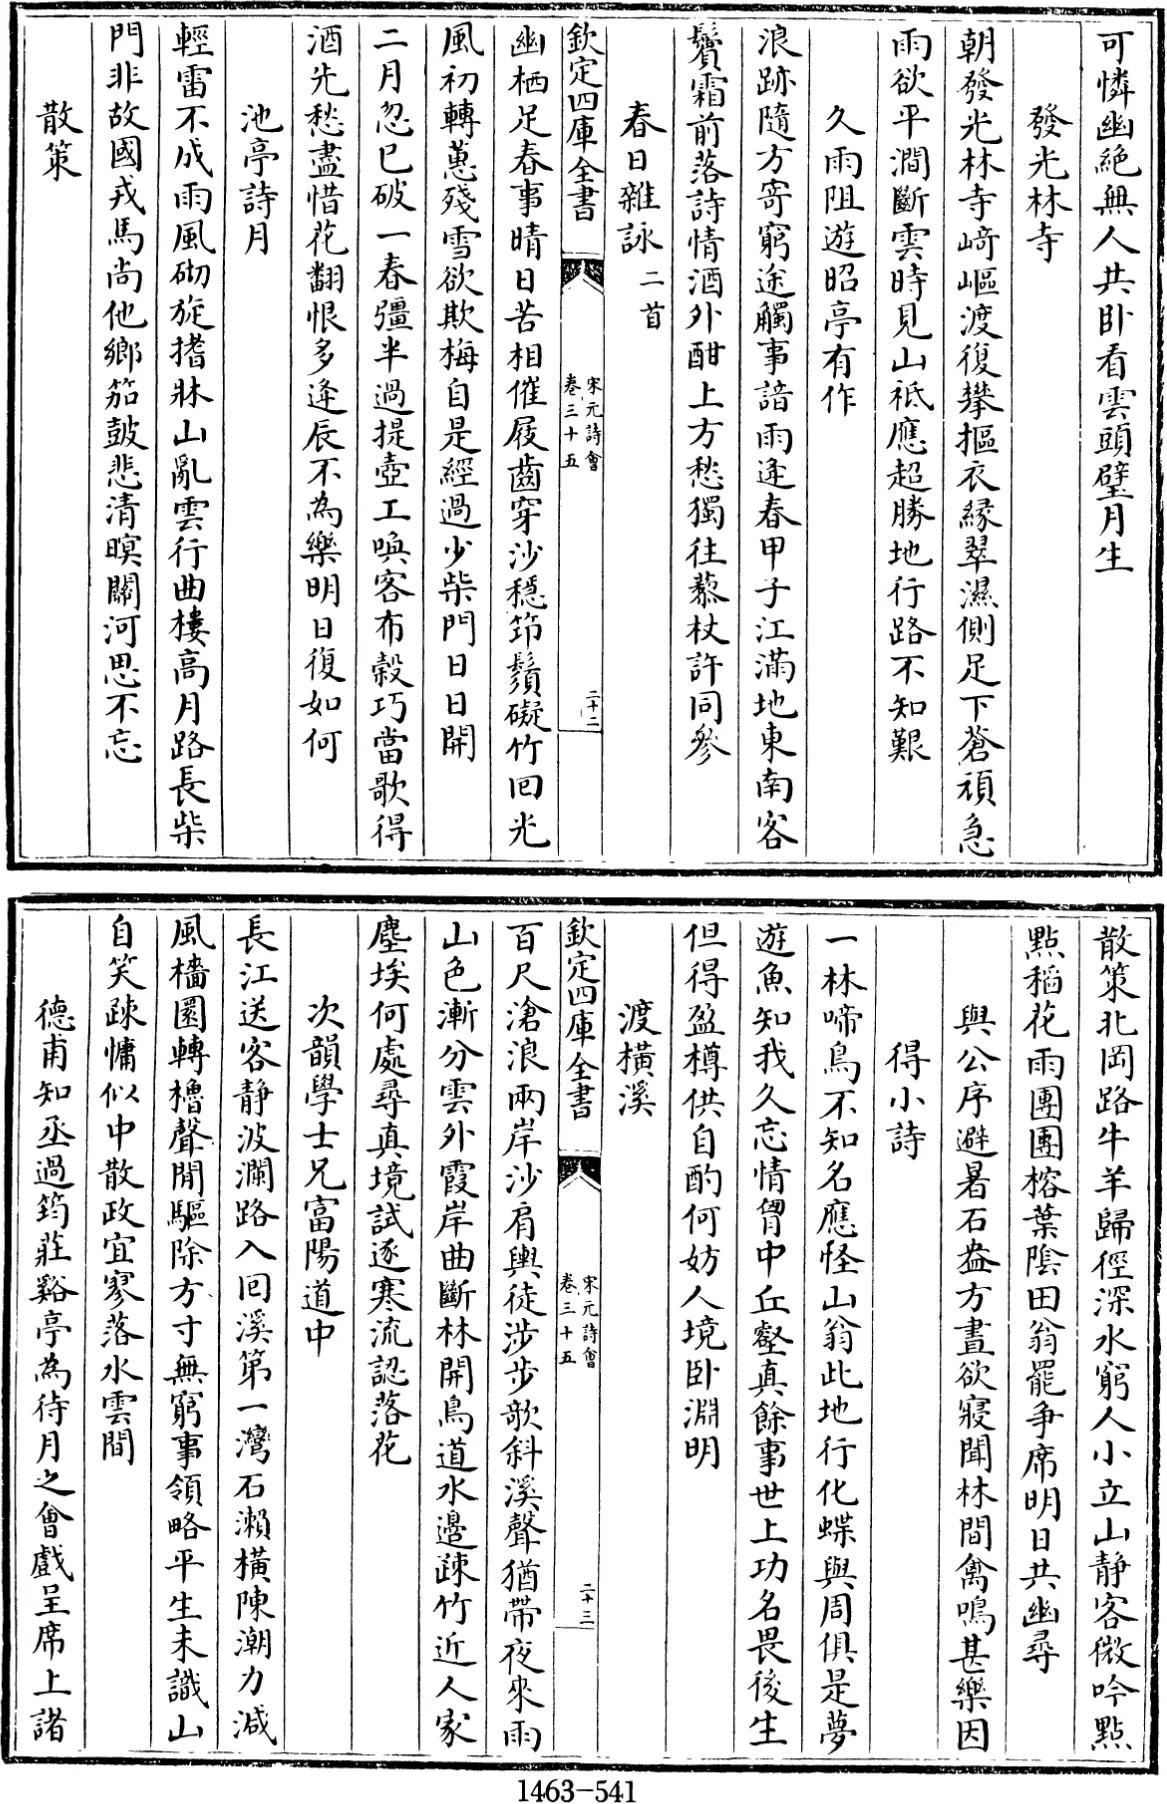 可憐幽絶無人共卧看雲頭璧月生
發光林寺
朝發光林寺﨑嶇渡復攀摳衣緑翠濕側足下蒼頑急
雨欲平澗斷雲時見山祗應超勝地行路不知艱
久雨阻遊昭亭有作
浪跡隨方寄窮途觸事諳雨逢春甲子江滿地東南客
鬢霜前落詩情酒外酣上方愁獨往藜杖許同參
春日雜詠二首
欽定四庫全書
宋元詩會
卷三十五
二十二
幽栖足春事晴日苦相催屐齒穿沙穩笻鬚礙竹回光
風初轉蕙殘雪欲欺梅自是經過少柴門日日開
二月忽已破一春彊半過提壺工喚客布穀巧當歌得
酒先愁盡惜花翻恨多逢辰不為樂明日復如何
池亭詩月
輕雷不成雨風砌旋揩牀山亂雲行曲樓高月路長柴
門非故國戎馬尚他鄉笳鼓悲清暝關河思不忘
散策
散策北岡路牛羊歸徑深水窮人小立山静客微吟點
點稻花雨團團榕葉陰田翁罷爭席明日共幽尋
與公序避暑石盎方晝欲寢聞林間禽鳴甚樂因
得小詩
一林啼鳥不知名應怪山翁此地行化蝶與周俱是夢
遊魚知我久忘情胷中丘壑真餘事世上功名畏後生
但得盈樽供自酌何妨人境卧淵明
渡橫溪
欽定四庫全書
宋元詩會
卷三十五
二十三
百尺滄浪兩岸沙肩輿徒涉步欹斜溪聲猶帶夜來雨
山色漸分雲外霞岸曲斷林開鳥道水邉疎竹近人家
塵埃何處尋真境試逐寒流認落花
次韻學士兄富陽道中
長江送客静波瀾路入回溪第一灣石瀨橫陳潮力減
風檣圜轉櫓聲閒驅除方寸無窮事領略平生未識山
自笑疎慵似中散政宜寥落水雲間
德甫知丞過筠莊谿亭為待月之會戲呈席上諸
1463-541